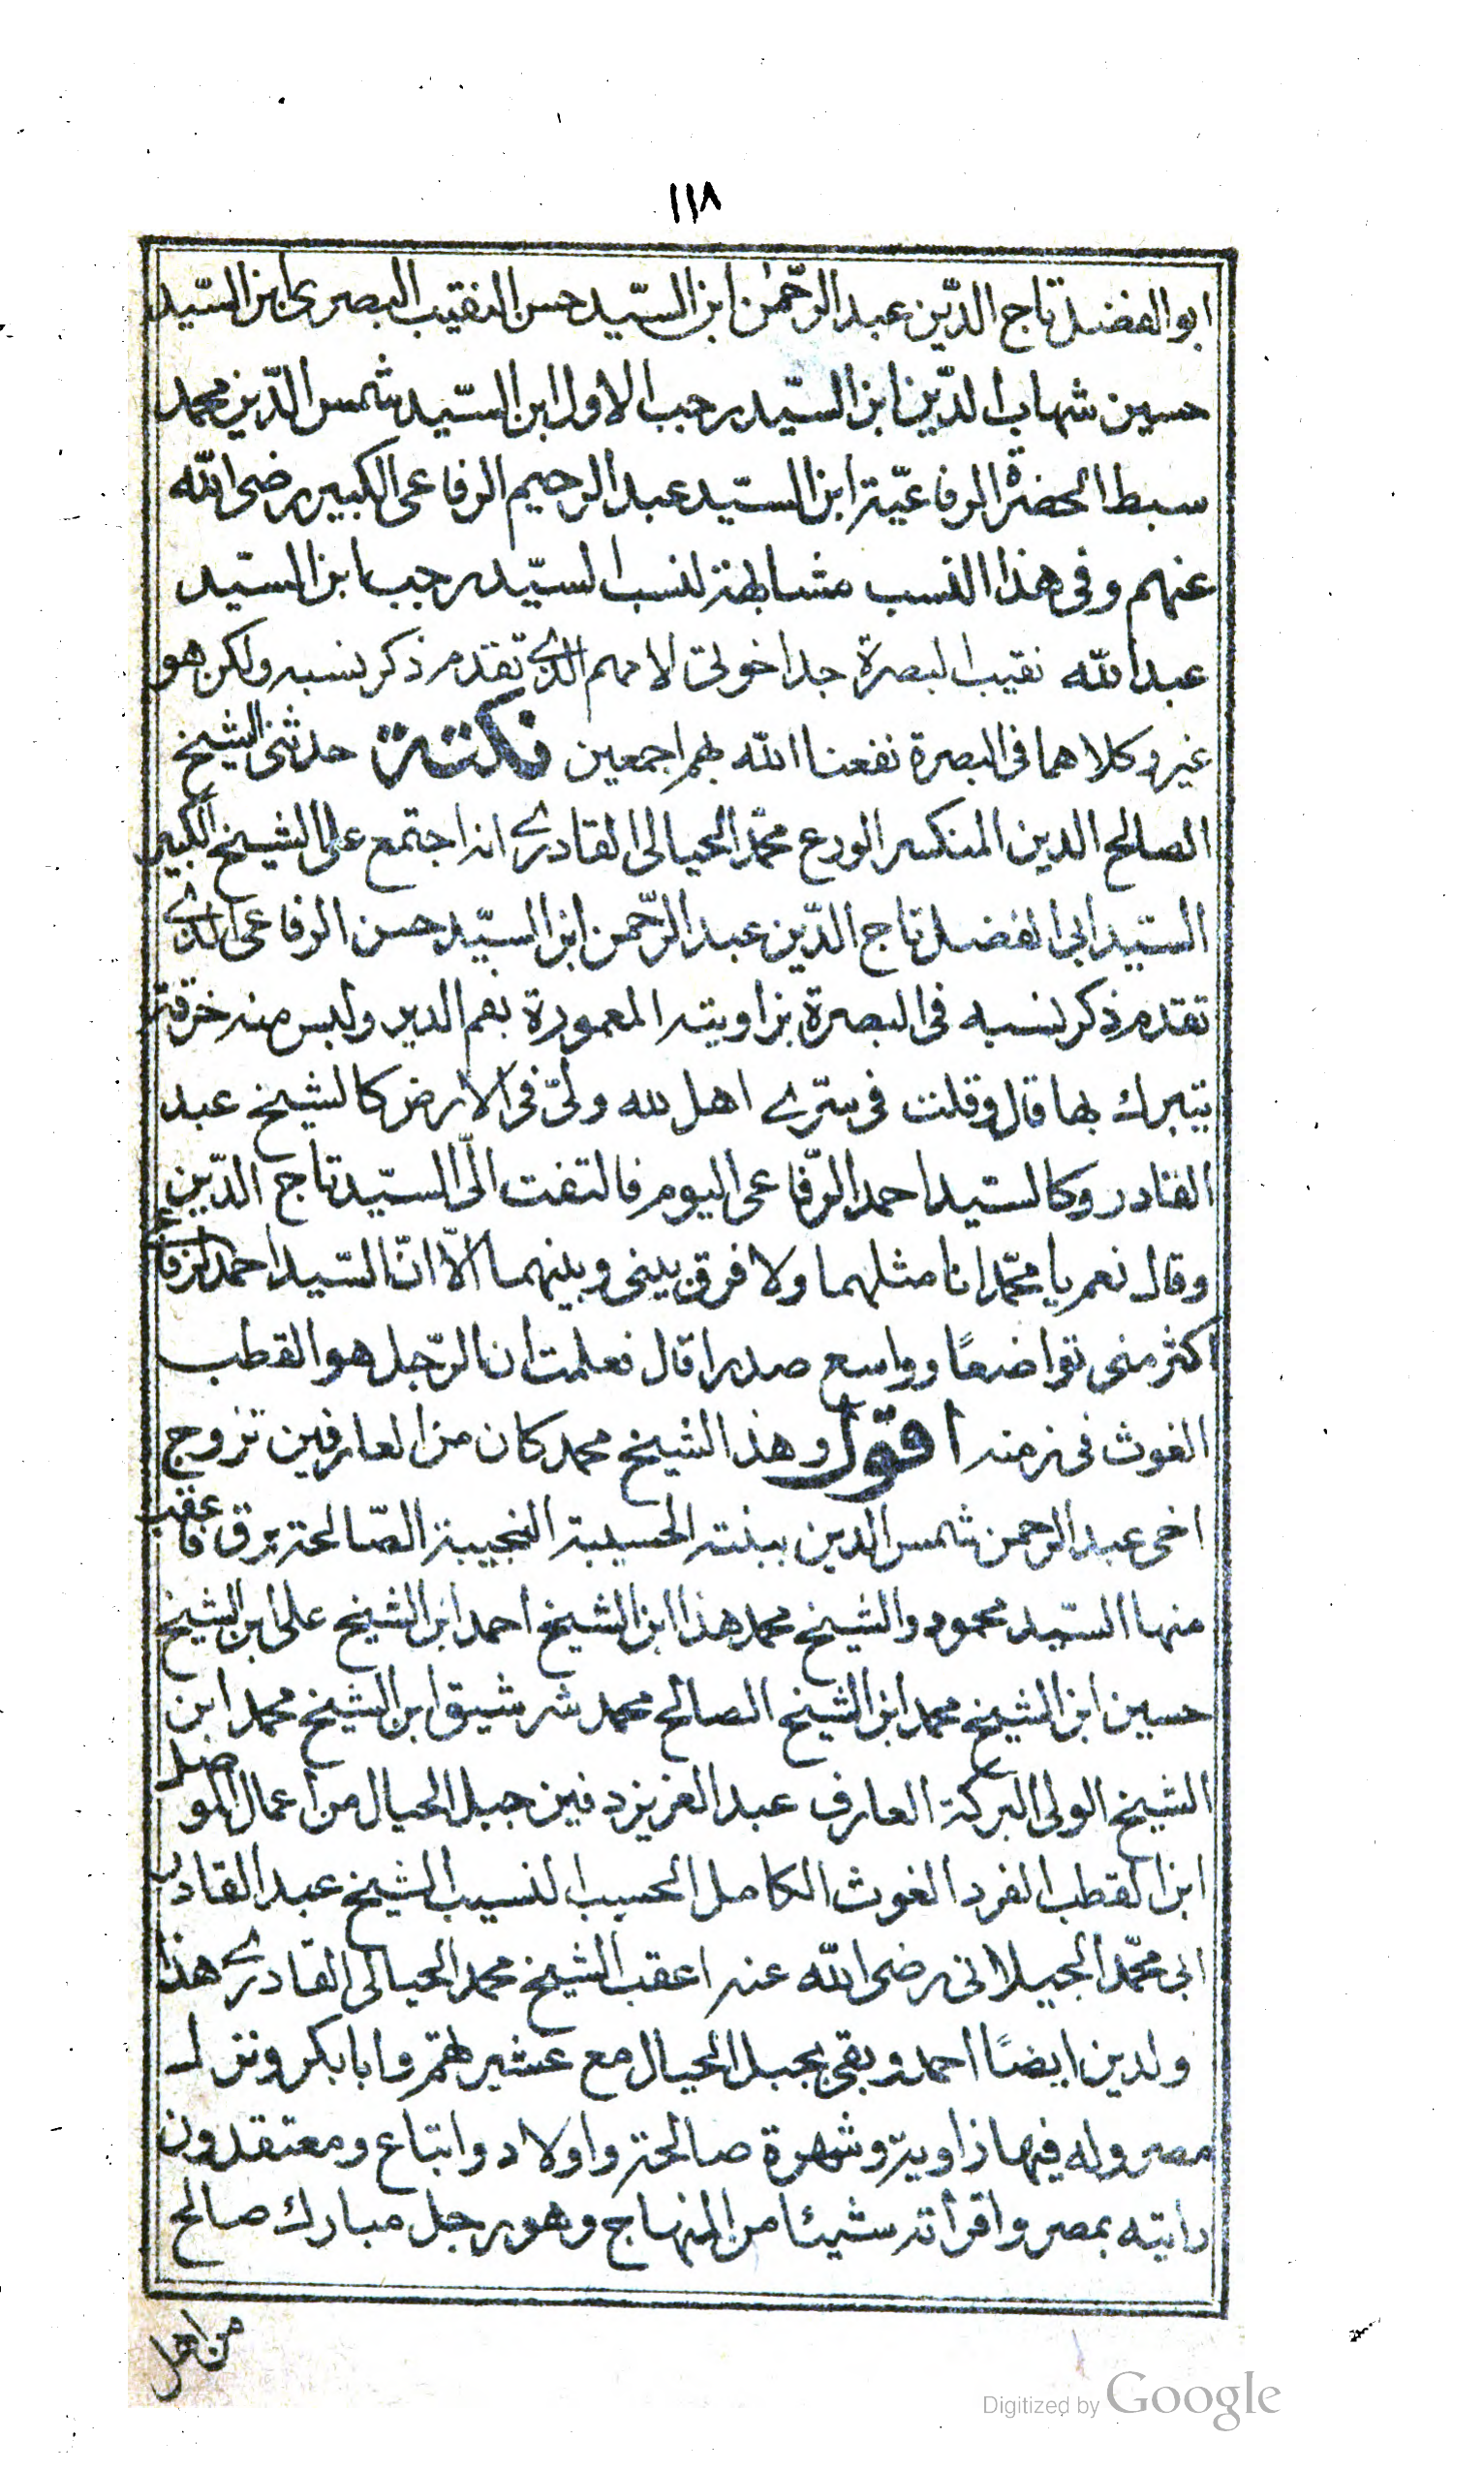 ١١٨
ابو الفضل تاج الدّين عبد الرّحمٰن ابن السّيد حسن النقيب البصرى ابن السّيد
حسين شهاب الدّين ابن السّيد رجب الاول ابن السّيد شمس الدّين محمد
سبط الحضرة الرفاعيّة ابن السّيد عبد الرحيم الرفاعى الكبير رضى الله
عنهم وفى هذا النسب مشابهة لنسب السيّد رجب ابن السيد
عبد الله نقيب البصرة جد اخوتى لامهم الذى تقدم ذكر نسبه ولكن هو
غير وكلاهما فى البصرة نفعنا الله بهم اجمعين نكتة حدثنى الشيخ
الصالح الدين المنكسر الورع محمّد الحيالى القادرى انه اجتمع على الشيخ الكبير
السّيد ابى الفضل تاج الدّين عبد الرّحمن ابن السيّد حسن الرفاعى الذى
تقدم ذكر نسبه فى البصرة بزاويته المعمورة بهم الدير ولبس منه خرقة
يتبرك بها قال وقلت فى سرّى اهل لله ولىّ فى الارض كالشيخ عبد
القادر وكالسّيد احمد الرّفاعى اليوم فالتفت الىّ السّيد تاج الدّين
وقال نعم يا محمّد انا مثلهما ولا فرق بينى وبينهما الّا انّ السّيد احمد الرفاعى
اكثر منى تواضعًا وواسع صدرا قال فعلمت ان الرّجل هو القطب
الغوث فى زمنه اقول وهذا الشيخ محمد كان من العارفين تزوج
اخى عبد الرحمن شمس الدين ببنته الحسيبة النجيبة الصّالحة برق فاعقب
منها السّيد محمود والشيخ محمد هذا ابن الشيخ احمد ابن الشيخ على ابن الشيخ
حسين ابن الشيخ محمد ابن الشيخ الصالح محمد شرشيق ابن الشيخ محمد ابن
الشيخ الولى البركة العارف عبد العزيز دفين جبل الحيال من اعمال الموصل
ابن القطب الفرد الغوث الكامل الحسيب النسيب الشيخ عبد القادر
ابى محمّد الجيلانى رضى الله عنه اعقب الشيخ محمد الحيالى القادرى هذا
ولدين ايضًا احمد وبقى بجبل الحيال مع عشيرتهم وابا بكر ونزل
مصر وله فيها زاوية وشهرة صالحة واولاد واتباع ومعتقدون
رايته بمصر واقرأته شيئا من المنهاج وهو رجل مبارك صالح
من اهل
Digitized by Google